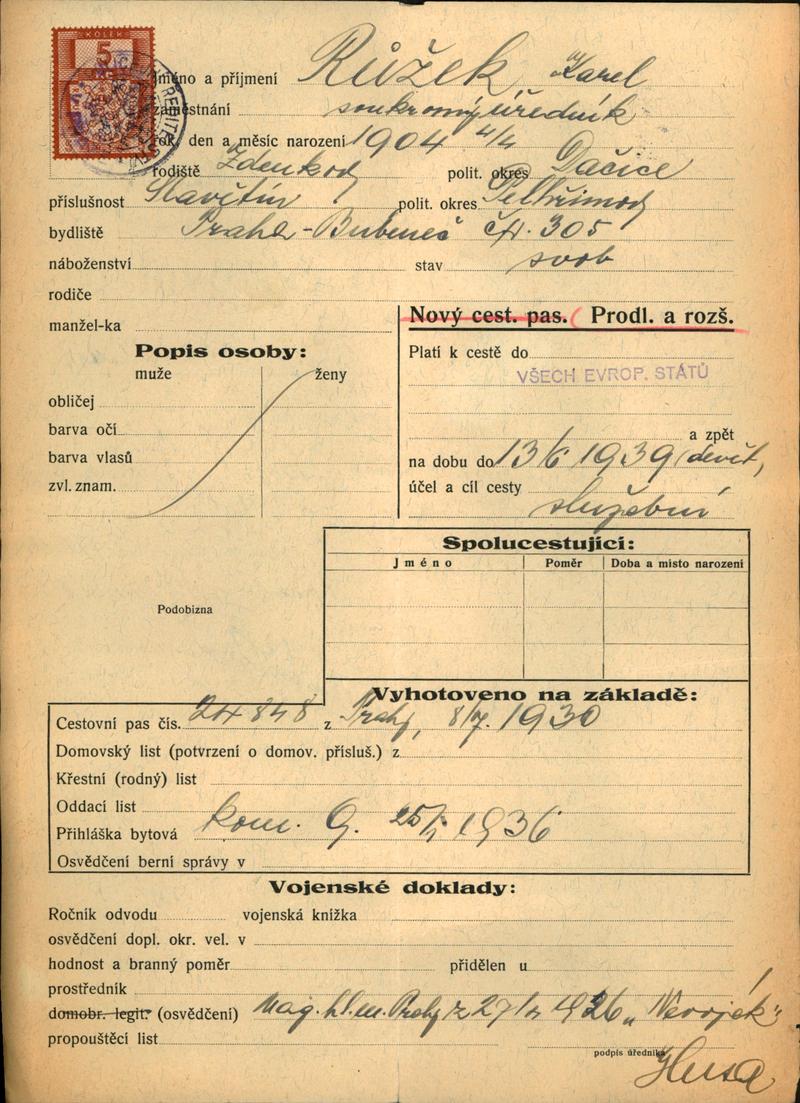 KOLEK
5
Jméno a příjmení Růžek Karel
zaměstnání soukromý úředník
rok, den a měsíc narození 1904 4/4
rodiště Zdenkov polit. okres Dačice
příslušnost Slavětín polit. okres Pelhřimov
bydliště Praha-Bubeneč čp. 305
náboženství stav svob
rodiče
manžel-ka
Nový cest. pas. ( Prodl. a rozš.
Popis osoby:
muže ženy
obličej
barva očí
barva vlasů
zvl. znam.
Platí k cestě do
VŠECH EVROP. STÁTŮ
a zpět
na dobu do 13/6 1939 (devět,
účel a cíl cesty služební
Spolucestující:
Jméno Poměr Doba a místo narození
Podobizna
Vyhotoveno na základě:
Cestovní pas čís. 24848 z Prahy, 8/7. 1930
Domovský list (potvrzení o domov. přísluš.) z
Křestní (rodný) list
Oddací list
Přihláška bytová kom. 9. 25/ 1936
Osvědčení berní správy v
Vojenské doklady:
Ročník odvodu vojenská knížka
osvědčení dopl. okr. vel. v
hodnost a branný poměr přidělen u
prostředník
domobr. legit. (osvědčení) Mag. hl. m. Prahy z 27/ 1926 „Nevoják"
propouštěcí list
podpis úředníka
Husa